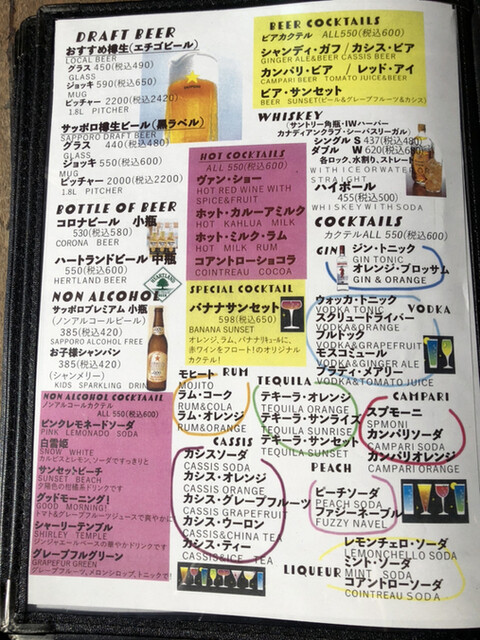 DRAFT BEER
おすすめ樽生(エチゴビール)
LOCAL BEER
グラス 450(税込490)
GLASS
ジョッキ 590(税込650)
MUG
ピッチャー 2200(税込2420)
1.8L PITCHER
サッポロ樽生ビール(黒ラベル)
SAPPORO DRAFT BEER
グラス 440(税込480)
GLASS
ジョッキ 550(税込600)
MUG
ピッチャー 2000(税込2200)
1.8L PITCHER
BOTTLE OF BEER
コロナビール 小瓶
530(税込580)
CORONA BEER
ハートランドビール 中瓶
550(税込600)
HERTLAND BEER
NON ALCOHOL
サッポロプレミアム 小瓶
(ノンアルコールビール)
385(税込420)
SAPPORO ALCOHOL FREE
お子様シャンパン
385(税込420)
(シャンメリー)
KIDS SPARKLING DRINK
NON ALCOHOL COCKTAAIL
ノンアルコールカクテル
ALL 550(税込600)
ピンクレモネードソーダ
PINK LEMONADO SODA
白雪姫
SNOW WHITE
カルピスとレモン、ソーダですっきりと
サンセットビーチ
SUNSET BEACH
夕陽色の柑橘系ドリンクです
グッドモーニング!
GOOD MORNING!
トマト&グレープフルーツジュースで爽やかに
シャーリーテンプル
SHIRLEY TEMPLE
ジンジャエールベースの華やかドリンクです
グレープフルグリーン
GRAPEFUR GREEN
グレープフルーツ、メロンシロップ、トニックで!
HOT COCKTAILS
ALL 550(税込600)
ヴァン・ショー
HOT RED WINE WITH
SPICE&FRUIT
ホット・カルーアミルク
HOT KAHLUA MILK
ホット・ミルク・ラム
HOT MILK RUM
コアントローショコラ
COINTREAU COCOA
SPECIAL COCKTAIL
バナナサンセット
598(税込650)
BANANA SUNSET
オレンジ、ラム、バナナリキュールに、
赤ワインをフロート!のオリジナル
カクテル!
モヒート RUM
MOJITO
ラム・コーク
RUM&COLA
ラム・オレンジ
RUM&ORANGE
TEQUILA
テキーラ・オレンジ
TEQUILA ORANGE
テキーラ・サンライズ
TEQUILA SUNRISE
テキーラ・サンセット
TEQUILA SUNSET
CASSIS
カシスソーダ
CASSIS SODA
カシス・オレンジ
CASSIS ORANGE
カシス・グレープフルーツ
CASSIS GRAPEFRUIT
カシス・ウーロン
CASSIS&CHINA TEA
カシス・ティー
CASSIS&ICE TEA
BEER COCKTAILS
ビアカクテル ALL550(税込600)
シャンディ・ガフ / カシス・ビア
GINGER ALE&BEER CASSIS BEER
カンパリ・ビア / レッド・アイ
CAMPARI BEER TOMATO JUICE&BEER
ビア・サンセット
BEER SUNSET(ビール&グレープフルーツ&カシス)
WHISKEY
(サントリー角瓶・IWハーパー
カナディアンクラブ・シーバスリーガル)
シングル S 437(税込480)
ダブル W 620(税込680)
各ロック、水割り、ストレート
WITH ICE OR WATER
STRAIGHT
ハイボール
455(税込500)
WHISKEY WITH SODA
COCKTAILS
カクテル ALL 550(税込600)
GIN
ジン・トニック
GIN TONIC
オレンジ・ブロッサム
GIN & ORANGE
VODKA
ウォッカ・トニック
VODKA TONIC
スクリュードライバー
VODKA&ORANGE
ブルドック
VODKA&GRAPEFRUIT
モスコミュール
VODKA&GINGER ALE
ブラディ・メアリー
VODKA&TOMATO JUICE
CAMPARI
スプモーニ
SPMONI
カンパリソーダ
CAMPARI SODA
カンパリオレンジ
CAMPARI ORANGE
PEACH
ピーチソーダ
PEACH SODA
ファジーネーブル
FUZZY NAVEL
LIQUEUR
レモンチェロ・ソーダ
LEMONCHELLO SODA
ミント・ソーダ
MINT SODA
コアントローソーダ
COINTREAU SODA